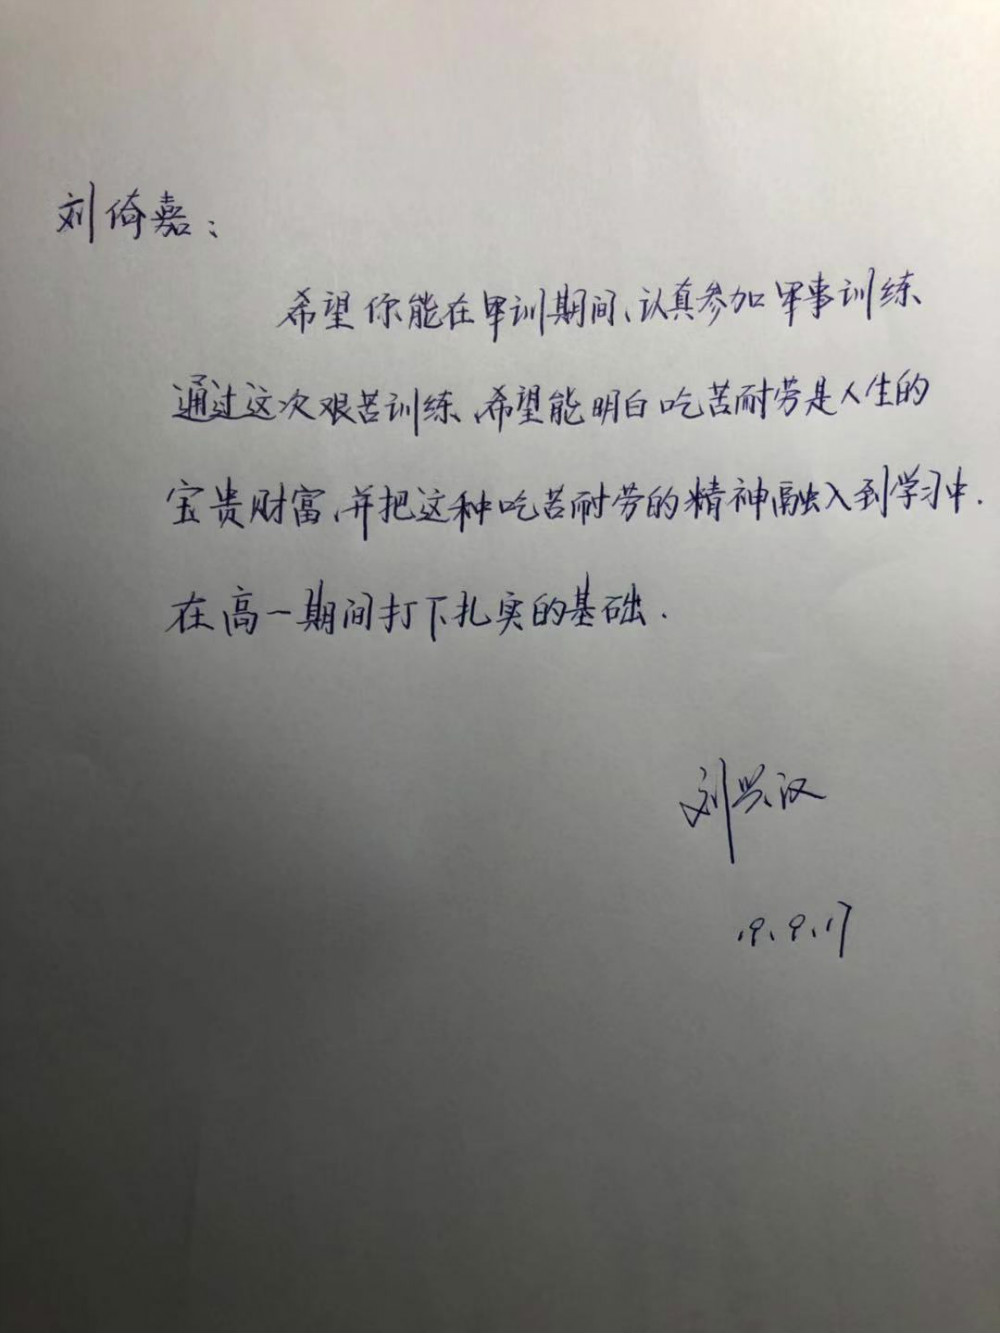 刘倚嘉：
希望你能在军训期间、认真参加军事训练
通过这次艰苦训练、希望能明白吃苦耐劳是人生的
宝贵财富、并把这种吃苦耐劳的精神融入到学习中.
在高一期间打下扎实的基础.
刘兴汉
19.9.17